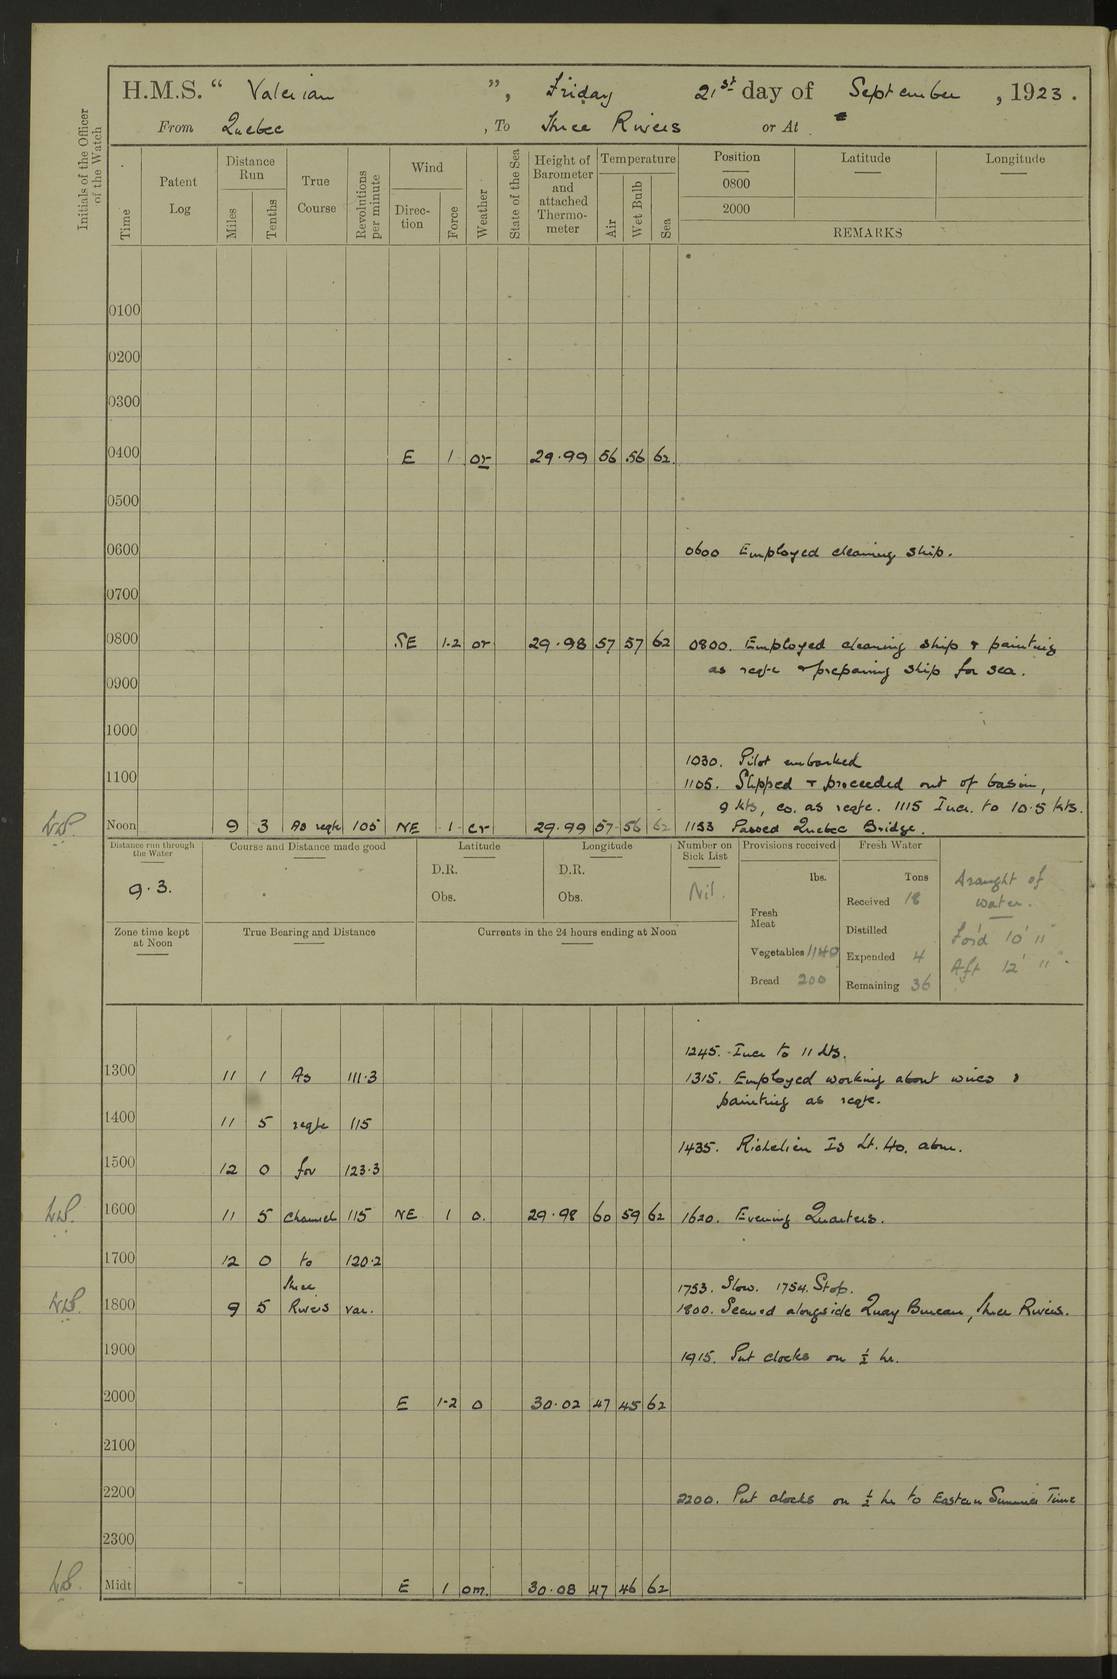 H.M.S. “ Valerian ”, Friday 21st day of September, 1923.
From Quebec, To Three Rivers or At -
Initials of the Officer of the Watch
Time
Patent Log
Distance Run
Miles
Tenths
True Course
Revolutions per minute
Wind
Direction
Force
Weather
State of the Sea
Height of Barometer and attached Thermometer
Temperature
Air
Wet Bulb
Sea
Position Latitude Longitude
0800
2000
REMARKS
0100
0200
0300
0400 E 1 or 29.99 56 56 62
0500
0600 0600 Employed cleaning ship.
0700
0800 SE 1.2 or 29.98 57 57 62 0800. Employed cleaning ship & painting
as reqte & preparing ship for sea.
0900
1000
1030. Pilot embarked
1100 1105. Slipped & proceeded out of basin,
9 kts, co. as reqte. 1115 Incr. to 10.5 kts.
Noon 9 3 As reqte 105 NE 1 cr 29.99 57 56 62 1153 Passed Quebec Bridge.
Distance run through the Water
9.3.
Course and Distance made good
Latitude
D.R.
Obs.
Longitude
D.R.
Obs.
Number on Sick List
Nil.
Provisions received
lbs.
Fresh Meat
Vegetables 1140
Bread 200
Fresh Water
Tons
Received 18
Distilled
Expended 4
Remaining 36
Draught of
water.
For'd 10' 11"
Aft 12' 11"
Zone time kept at Noon
True Bearing and Distance
Currents in the 24 hours ending at Noon
1245. Incr to 11 kts.
1300 11 1 As 111.3 1315. Employed working about wires &
painting as reqte.
1400 11 5 reqte 115
1435. Richelieu Is Lt. Ho. abm.
1500 12 0 for 123.3
1600 11 5 Channel 115 NE 1 o. 29.98 60 59 62 1620. Evening Quarters.
1700 12 0 to 120.2
Three 1753. Slow. 1754. Stop.
1800 9 5 Rivers var. 1800. Secured alongside Quay Bureau, Three Rivers.
1900 1915. Put clocks on ½ hr.
2000 E 1-2 o 30.02 47 45 62
2100
2200 2200. Put clocks on ½ hr to Eastern Summer Time
2300
Midt E 1 om. 30.08 47 46 62